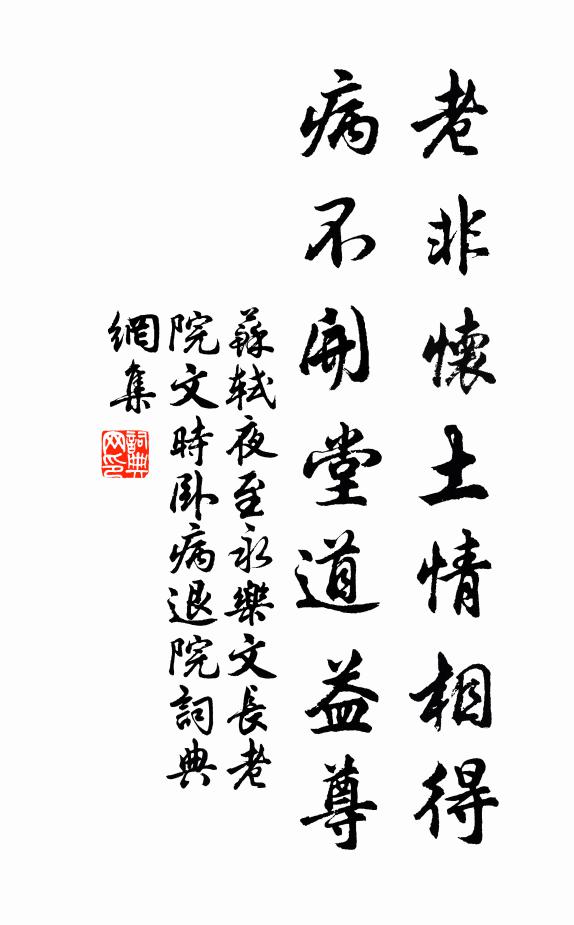 老非懷土情相得
病不開堂道益尊
蘇軾夜至永樂文長老
院文時卧病退院詞典
網集
詞典网印